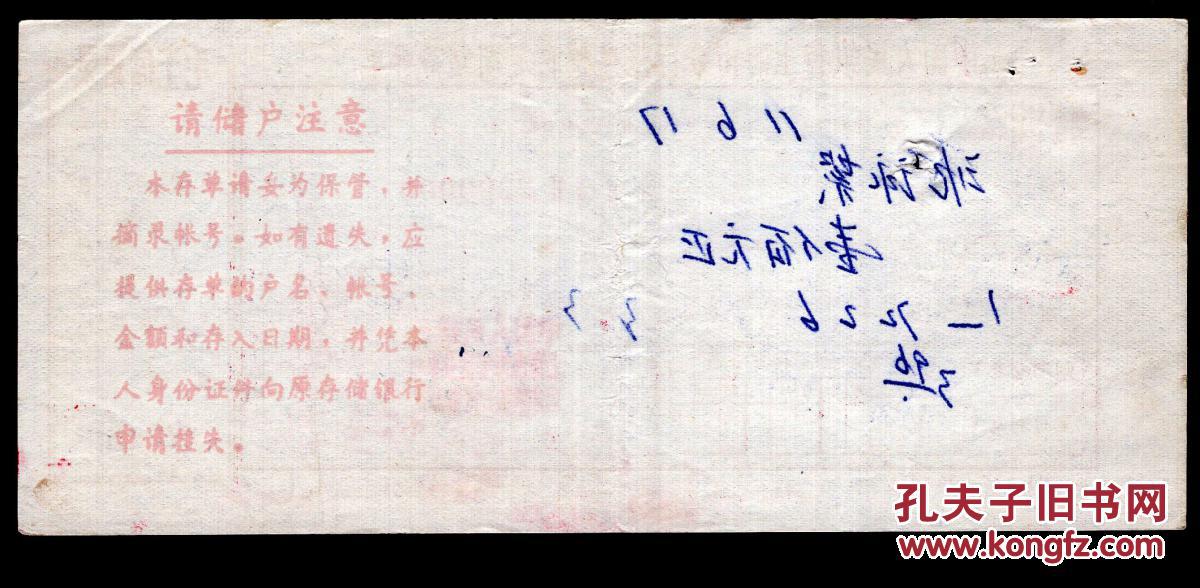 请储户注意
本存单请妥为保管，并
摘录帐号。如有遗失，应
提供存单的户名、帐号、
金额和存入日期，并凭本
人身份证件向原存储银行
申请挂失。
11 6 17
张咏
壹佰元正
孔夫子旧书网
www.kongfz.com